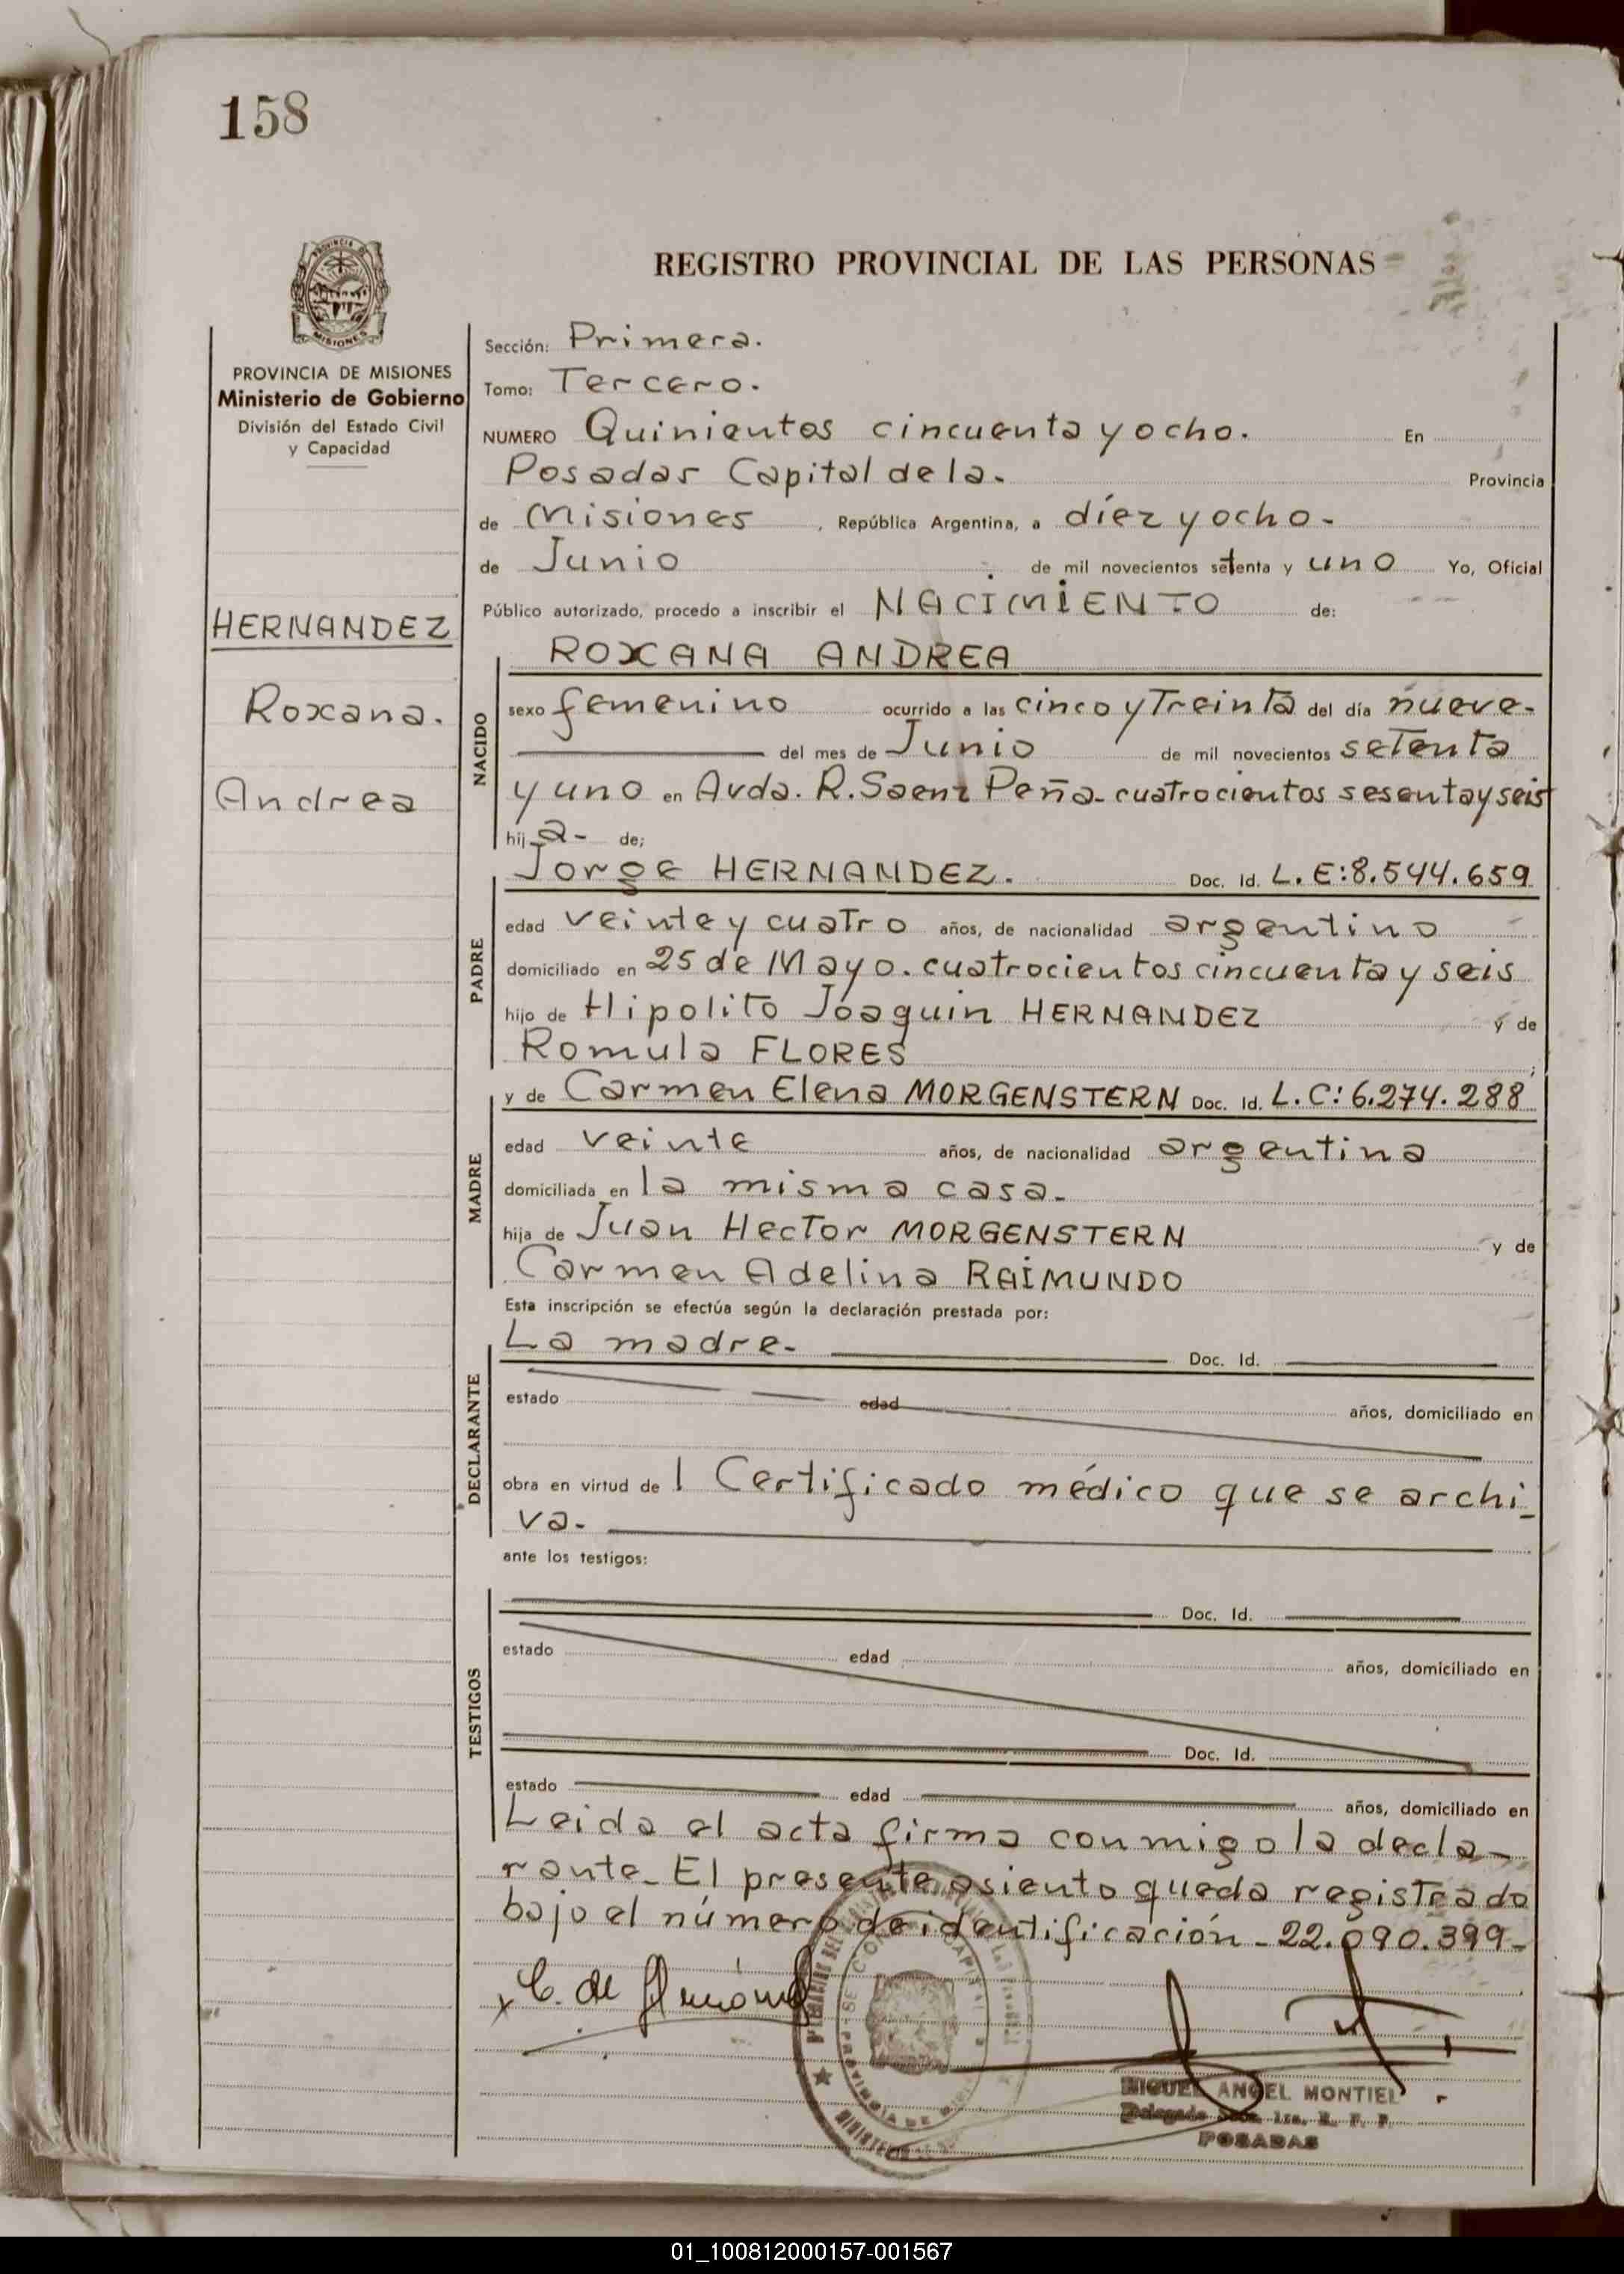 158
MISIONES
REGISTRO PROVINCIAL DE LAS PERSONAS
PROVINCIA DE MISIONES
Ministerio de Gobierno
División del Estado Civil
y Capacidad
HERNANDEZ
Roxana.
Andrea
Sección: Primera.
Tomo: Tercero.
NUMERO Quinientos cincuenta y ocho. En
Posadas Capital de la. Provincia
de Misiones, República Argentina, a díez y ocho-
de Junio de mil novecientos setenta y uno Yo, Oficial
Público autorizado, procedo a inscribir el NACIMIENTO de:
ROXANA ANDREA
NACIDO
sexo femenino ocurrido a las cinco y Treinta del día nueve-
del mes de Junio de mil novecientos setenta
y uno en Avda. R. Saenz Peña- cuatrocientos sesenta y seis
hija- de;
Jorge HERNANDEZ. Doc. Id. L.E:8.544.659
PADRE
edad veinte y cuatro años, de nacionalidad argentino
domiciliado en 25 de Mayo. cuatrocientos cincuenta y seis
hijo de Hipolito Joaquin HERNANDEZ y de
Romula FLORES;
MADRE
y de Carmen Elena MORGENSTERN Doc. Id. L.C: 6.274.288
edad veinte años, de nacionalidad argentina
domiciliada en la misma casa-
hija de Juan Hector MORGENSTERN y de
Carmen Adelina RAIMUNDO
Esta inscripción se efectúa según la declaración prestada por:
DECLARANTE
La madre- Doc. Id.
estado edad años, domiciliado en
obra en virtud de 1 Certificado médico que se archi-
va-
ante los testigos:
TESTIGOS
Doc. Id.
estado edad años, domiciliado en
Doc. Id.
estado edad años, domiciliado en
Leida el acta firma conmigo la decla-
rante- El presente asiento queda registrado
bajo el número de identificación- 22.090.399-
MIGUEL ANGEL MONTIEL
Delegado Secc. 1ra. R. P. P.
POSADAS
01_100812000157-001567